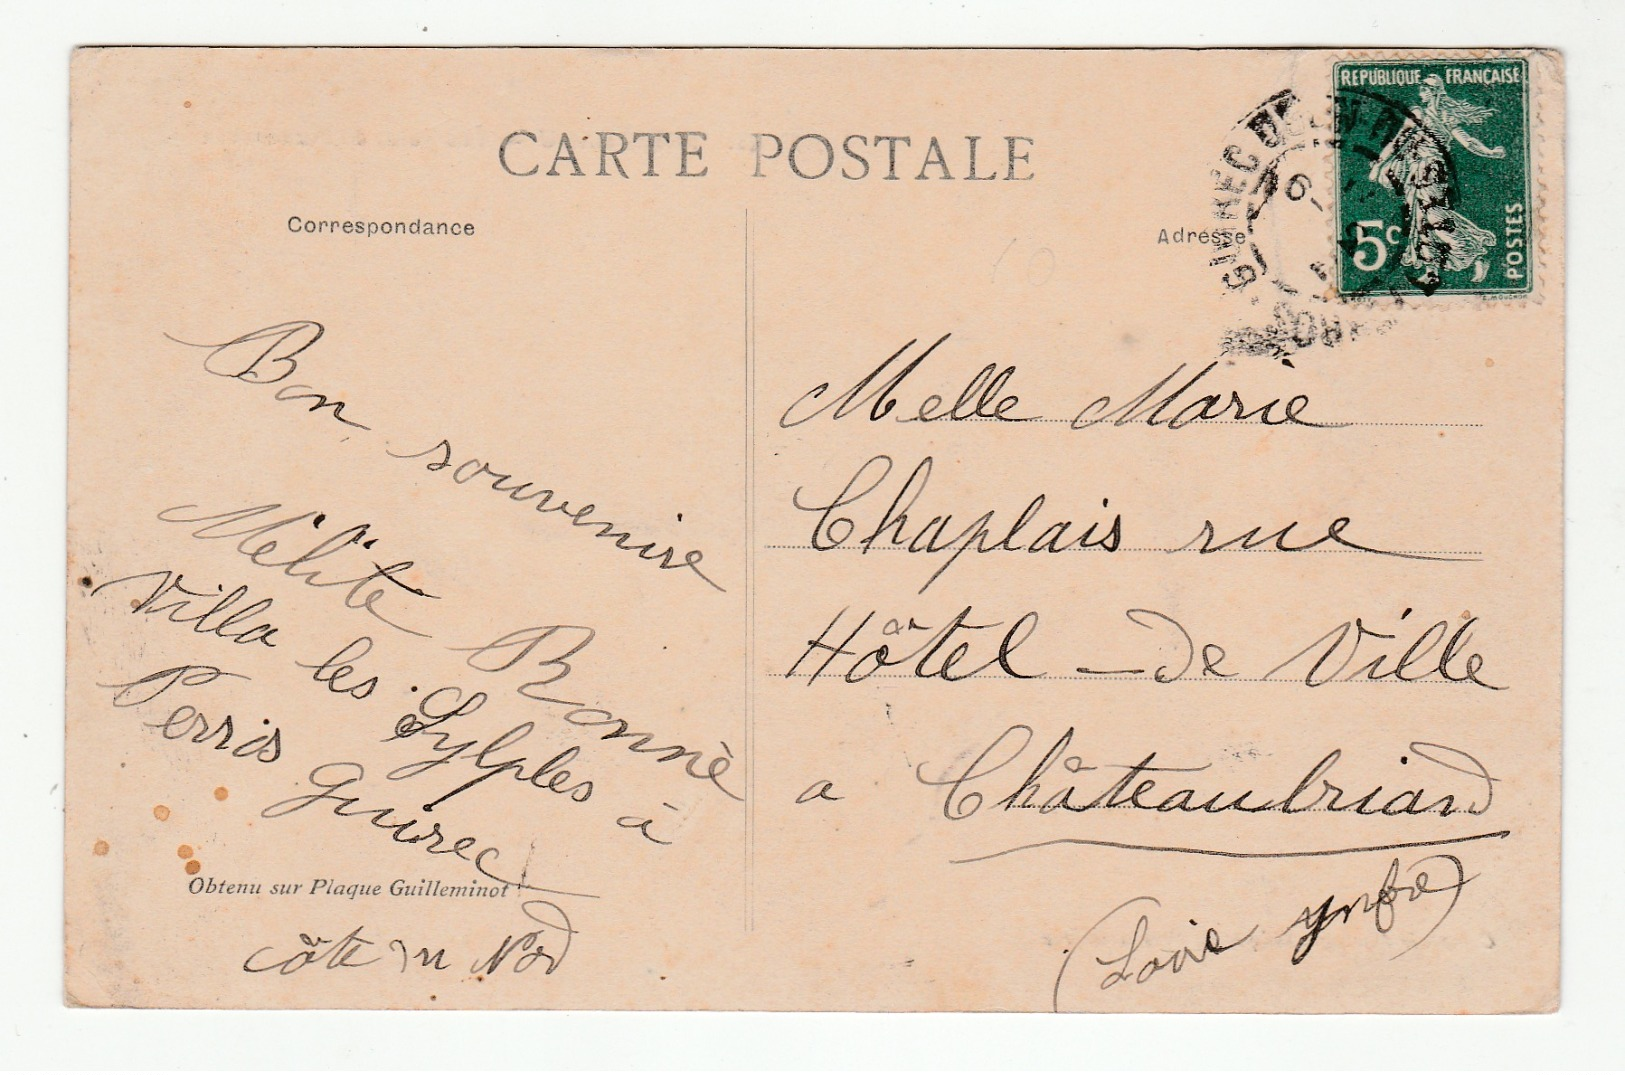 CARTE POSTALE
Correspondance
Adresse
REPUBLIQUE FRANÇAISE
5c
POSTES
Bon souvenire
Mélite Bonnè
Villa les Sylples à
Perris Guirec
Obtenu sur Plaque Guilleminot
Côte du Nord
Melle Marie
Chaplais rue
Hôtel-de Ville
a Châteaubriand
(Loire ynfre)